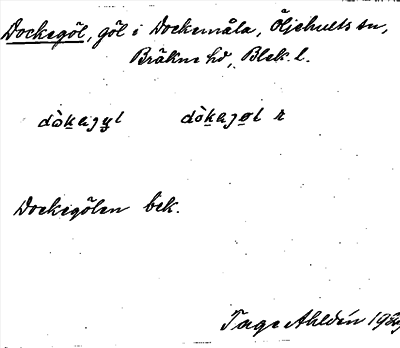 Dockegöl, göl i Dockemåla, Öljehults sn,
Bräkne hd, Blek. l.
dòkagyl dòkagøl r
Dockegölen bek.
Tage Ahldén